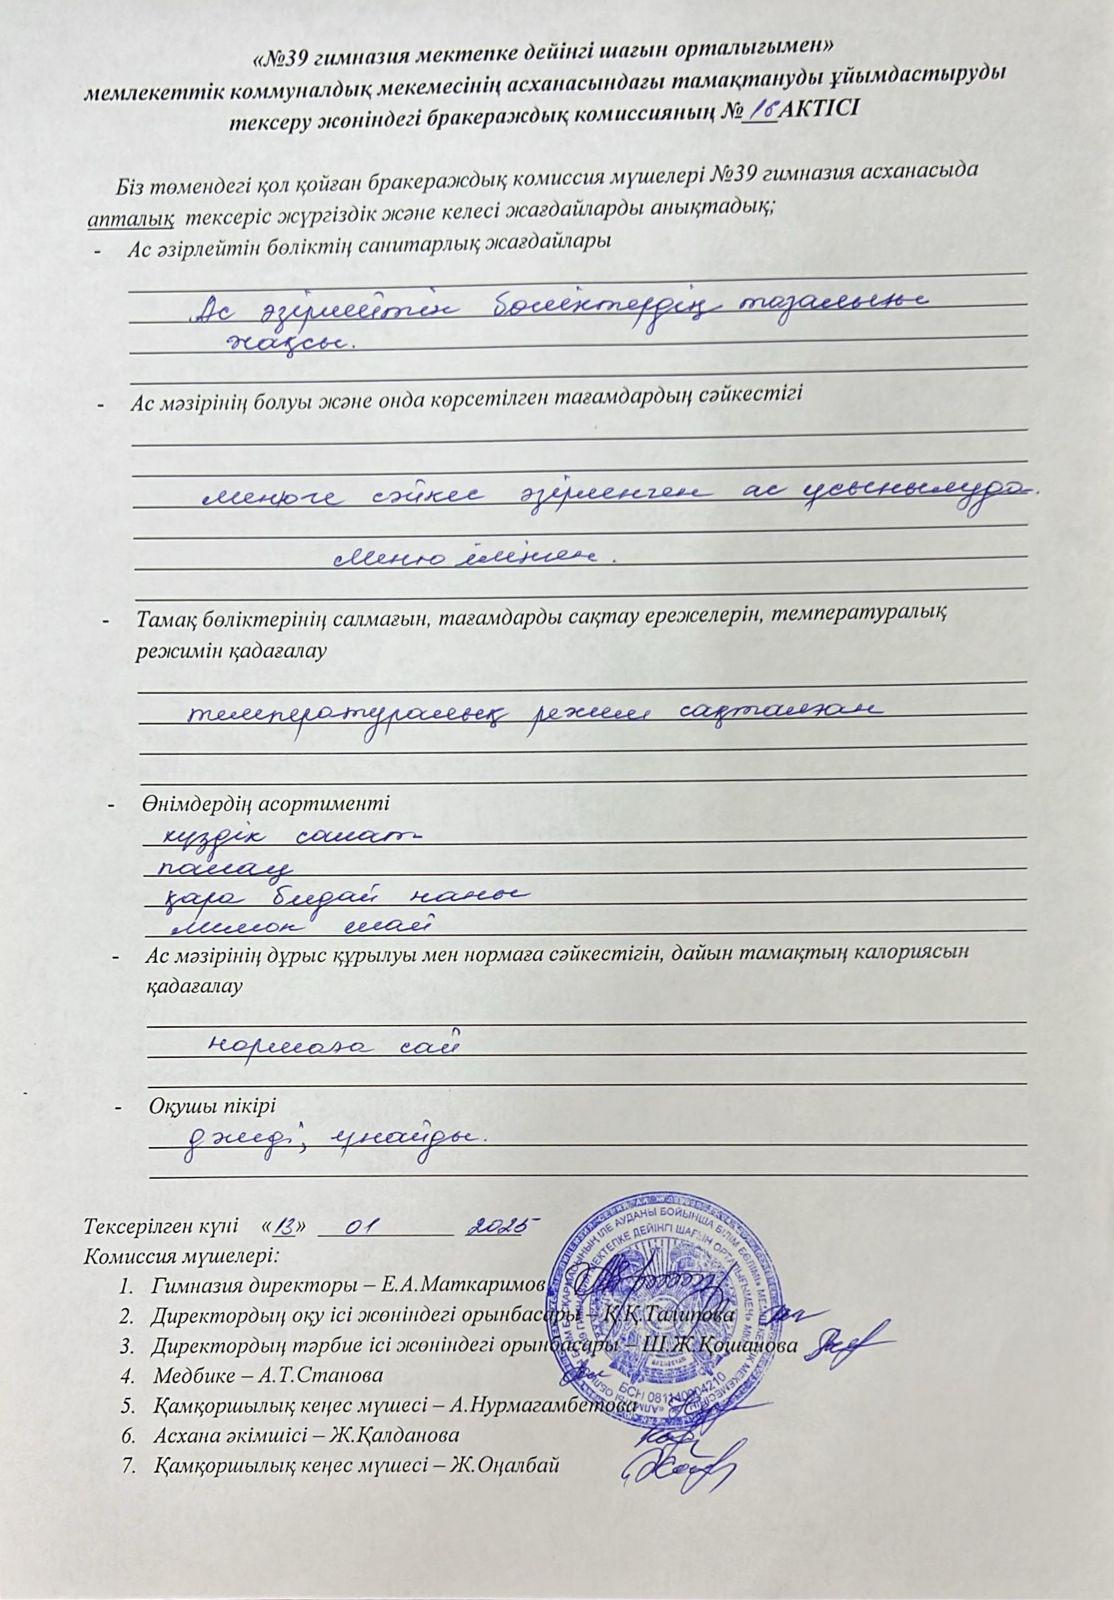 «№39 гимназия мектепке дейінгі шағын орталығымен»
мемлекеттік коммуналдық мекемесінің асханасындағы тамақтануды ұйымдастыруды
тексеру жөніндегі бракераждық комиссияның №16 АКТІСІ
Біз төмендегі қол қойған бракераждық комиссия мүшелері №39 гимназия асханасыда
апталық тексеріс жүргіздік және келесі жағдайларды анықтадық;
- Ас әзірлейтін бөліктің санитарлық жағдайлары
Ас әзірлейтін бөліктердің тазалығы
жақсы.
- Ас мәзірінің болуы және онда көрсетілген тағамдардың сәйкестігі
менюге сәйкес әзірленген ас ұсынылуда.
Меню ілінген.
- Тамақ бөліктерінің салмағын, тағамдарды сақтау ережелерін, температуралық
режимін қадағалау
температуралық режим сақталған
- Өнімдердің асортименті
күздік салат
палау
қара бидай наны
лимон шай
- Ас мәзірінің дұрыс құрылуы мен нормаға сәйкестігін, дайын тамақтың калориясын
қадағалау
нормаға сай
- Оқушы пікірі
дәмді, ұнайды.
Тексерілген күні «13» 01 2025
Комиссия мүшелері:
1. Гимназия директоры – Е.А.Маткаримов
2. Директордың оқу ісі жөніндегі орынбасары – Қ.Қ.Талипова
3. Директордың тәрбие ісі жөніндегі орынбасары – Ш.Ж.Қошанова
4. Медбике – А.Т.Станова
БСН 081140004210
5. Қамқоршылық кеңес мүшесі – А.Нурмагамбетова
6. Асхана әкімшісі – Ж.Қалданова
7. Қамқоршылық кеңес мүшесі – Ж.Оңалбай